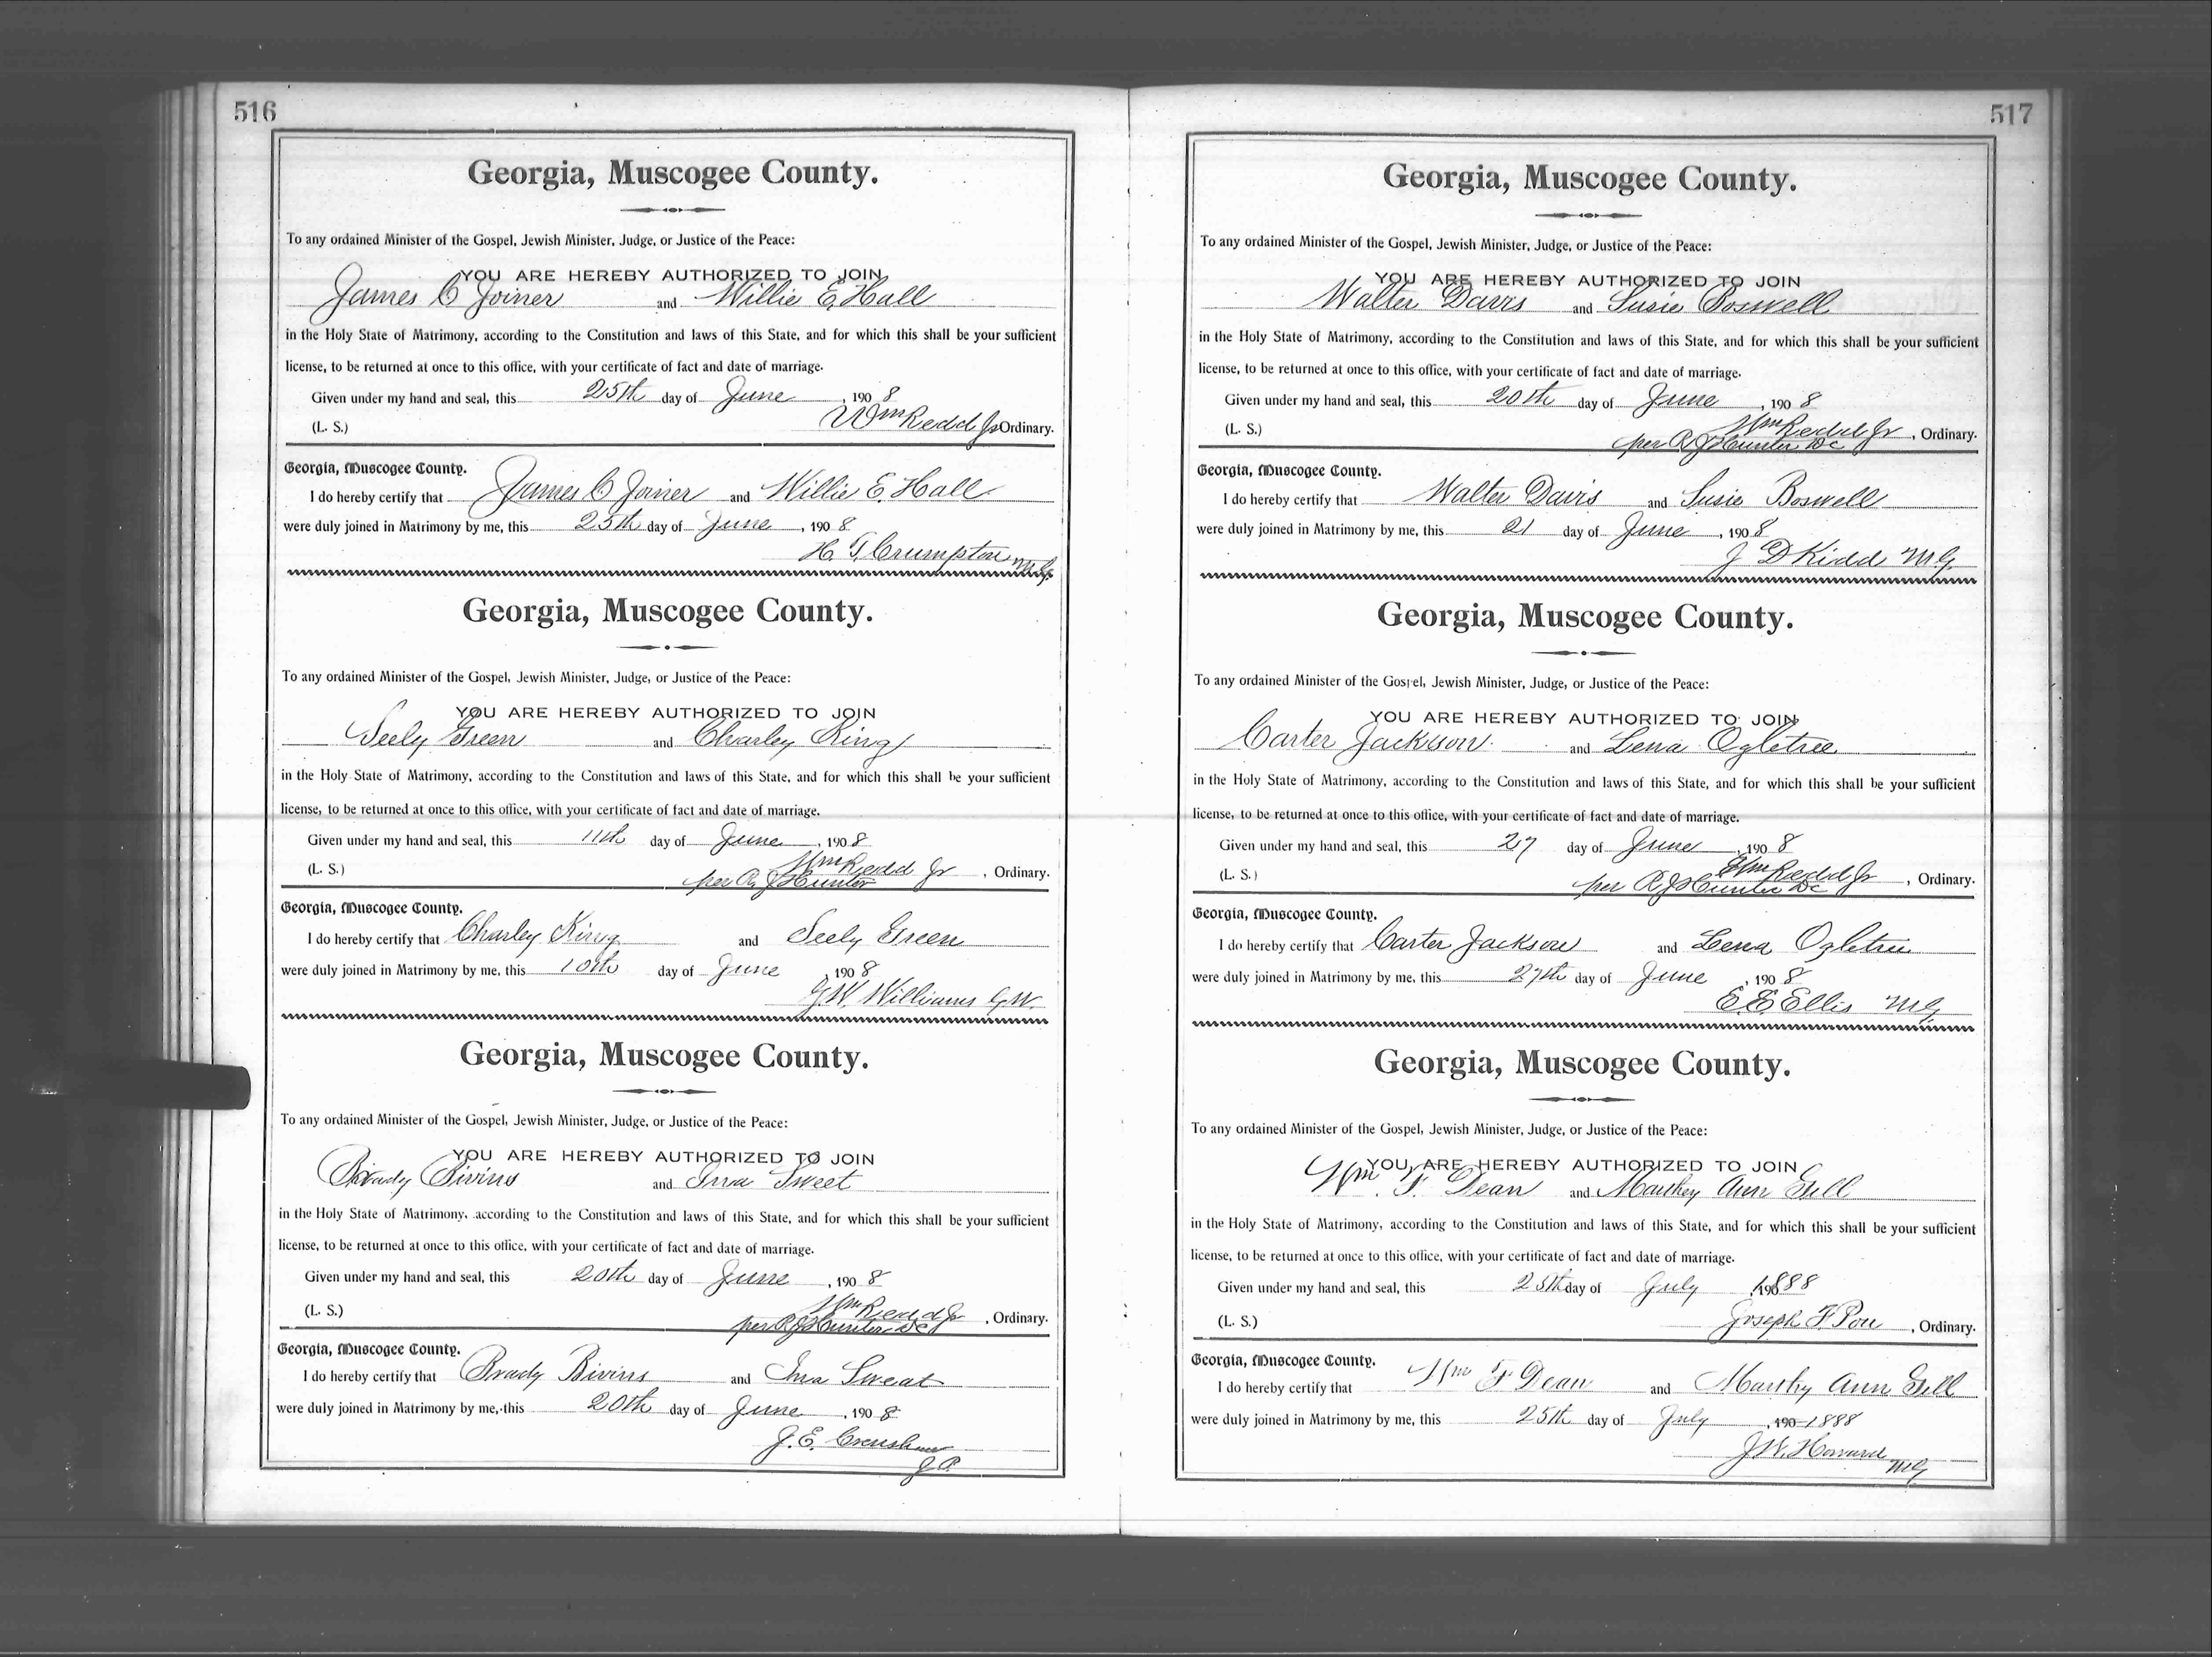 516
Georgia, Muscogee County.
To any ordained Minister of the Gospel, Jewish Minister, Judge, or Justice of the Peace:
YOU ARE HEREBY AUTHORIZED TO JOIN
James C Joiner and Willie E. Hall
in the Holy State of Matrimony, according to the Constitution and laws of this State, and for which this shall be your sufficient
license, to be returned at once to this office, with your certificate of fact and date of marriage.
Given under my hand and seal, this 25th day of June, 1908
(L. S.) Wm Redd Jr Ordinary.
Georgia, Muscogee County.
I do hereby certify that James C Joiner and Willie E. Hall
were duly joined in Matrimony by me, this 25th day of June, 1908
H. T. Crumpton M.G.
Georgia, Muscogee County.
To any ordained Minister of the Gospel, Jewish Minister, Judge, or Justice of the Peace:
YOU ARE HEREBY AUTHORIZED TO JOIN
Seely Green and Charley King
in the Holy State of Matrimony, according to the Constitution and laws of this State, and for which this shall be your sufficient
license, to be returned at once to this office, with your certificate of fact and date of marriage.
Given under my hand and seal, this 11th day of June, 1908
(L. S.) Wm Redd Jr, Ordinary.
per R J Hunter
Georgia, Muscogee County.
I do hereby certify that Charley King and Seely Green
were duly joined in Matrimony by me, this 10th day of June, 1908
G.W. Williams
Georgia, Muscogee County.
To any ordained Minister of the Gospel, Jewish Minister, Judge, or Justice of the Peace:
YOU ARE HEREBY AUTHORIZED TO JOIN
Brady Bivins and Ina Sweet
in the Holy State of Matrimony, according to the Constitution and laws of this State, and for which this shall be your sufficient
license, to be returned at once to this office, with your certificate of fact and date of marriage.
Given under my hand and seal, this 20th day of June, 1908
(L. S.) Wm Redd Jr, Ordinary.
per R J Hunter DC
Georgia, Muscogee County.
I do hereby certify that Brady Bivins and Ina Sweat
were duly joined in Matrimony by me, this 20th day of June, 1908
J. E. Crenshaw
J.P.
517
Georgia, Muscogee County.
To any ordained Minister of the Gospel, Jewish Minister, Judge, or Justice of the Peace:
YOU ARE HEREBY AUTHORIZED TO JOIN
Walter Davis and Susie Boswell
in the Holy State of Matrimony, according to the Constitution and laws of this State, and for which this shall be your sufficient
license, to be returned at once to this office, with your certificate of fact and date of marriage.
Given under my hand and seal, this 20th day of June, 1908
(L. S.) Wm Redd Jr, Ordinary.
per R J Hunter DC
Georgia, Muscogee County.
I do hereby certify that Walter Davis and Susie Boswell
were duly joined in Matrimony by me, this 21 day of June, 1908
J D Kidd M.G.
Georgia, Muscogee County.
To any ordained Minister of the Gospel, Jewish Minister, Judge, or Justice of the Peace:
YOU ARE HEREBY AUTHORIZED TO JOIN
Carter Jackson and Lena Ogletree
in the Holy State of Matrimony, according to the Constitution and laws of this State, and for which this shall be your sufficient
license, to be returned at once to this office, with your certificate of fact and date of marriage.
Given under my hand and seal, this 27 day of June, 1908
(L. S.) Wm Redd Jr, Ordinary.
per R J Hunter DC
Georgia, Muscogee County.
I do hereby certify that Carter Jackson and Lena Ogletree
were duly joined in Matrimony by me, this 27th day of June, 1908
E. E. Ellis M.G.
Georgia, Muscogee County.
To any ordained Minister of the Gospel, Jewish Minister, Judge, or Justice of the Peace:
YOU ARE HEREBY AUTHORIZED TO JOIN
Wm. F. Dean and Marthy Ann Gill
in the Holy State of Matrimony, according to the Constitution and laws of this State, and for which this shall be your sufficient
license, to be returned at once to this office, with your certificate of fact and date of marriage.
Given under my hand and seal, this 25th day of July 1888
(L. S.) Joseph F. Pou, Ordinary.
Georgia, Muscogee County.
I do hereby certify that Wm F Dean and Marthy Ann Gill
were duly joined in Matrimony by me, this 25th day of July, 190 1888
J.W. Howard
M.G.